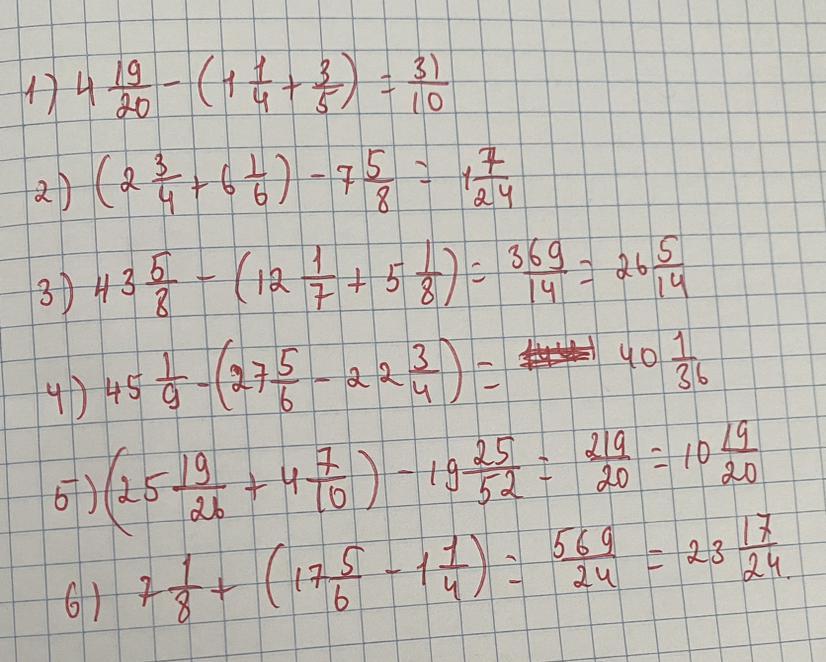 1) 4 19/20 - (1 1/4 + 3/5) = 31/10
2) (2 3/4 + 6 1/6) - 7 5/8 = 1 7/24
3) 43 5/8 - (12 1/7 + 5 1/8) = 369/14 = 26 5/14
4) 45 1/9 - (27 5/6 - 22 3/4) = 40 1/36
5) (25 19/26 + 4 7/10) - 19 25/52 = 219/20 = 10 19/20
6) 7 1/8 + (17 5/6 - 1 1/4) = 569/24 = 23 17/24.